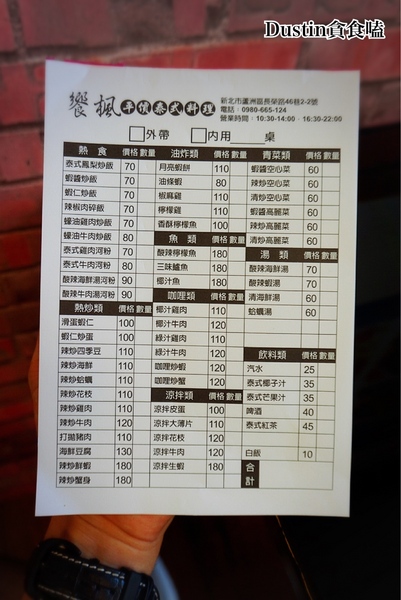 Dustin貪食嗑
饗楓 平價泰式料理
新北市蘆洲區長榮路46巷2-2號
電話：0980-665-124
營業時間：10:30-14:00、16:30-22:00
外帶 內用 桌
熱食 價格 數量
泰式鳳梨炒飯 70
蝦醬炒飯 70
蝦仁炒飯 70
辣椒肉碎飯 70
蠔油雞肉炒飯 70
蠔油牛肉炒飯 80
泰式雞肉河粉 70
泰式牛肉河粉 80
酸辣海鮮河粉 90
酸辣牛肉湯河粉 90
熱炒類 價格 數量
滑蛋蝦仁 100
蝦仁炒蛋 100
辣炒四季豆 110
辣炒海鮮 110
辣炒蛤蠣 110
辣炒花枝 110
辣炒雞肉 110
辣炒牛肉 120
打拋豬肉 110
海鮮豆腐 130
辣炒鮮蝦 180
辣炒蟹身 180
油炸類 價格 數量
月亮蝦餅 110
油條蝦 80
椒麻雞 110
檸檬雞 110
香酥檸檬魚 100
魚類 價格 數量
酸辣檸檬魚 180
三味鱸魚 180
椰汁魚 180
咖哩類 價格 數量
椰汁雞肉 110
椰汁牛肉 120
綠汁雞肉 110
綠汁牛肉 120
咖哩炒蝦 120
咖哩炒蟹 120
涼拌類 價格 數量
涼拌皮蛋 100
涼拌大薄片 110
涼拌花枝 120
涼拌牛肉 120
涼拌生蝦 180
青菜類 價格 數量
蝦醬空心菜 60
辣炒空心菜 60
清炒空心菜 60
蝦醬高麗菜 60
辣炒高麗菜 60
清炒高麗菜 60
湯類 價格 數量
酸辣海鮮湯 70
酸辣蝦湯 70
清海鮮湯 60
蛤蠣湯 60
飲料類 價格 數量
汽水 25
泰式椰子汁 35
泰式芒果汁 35
啤酒 40
泰式紅茶 45
白飯 10
合計